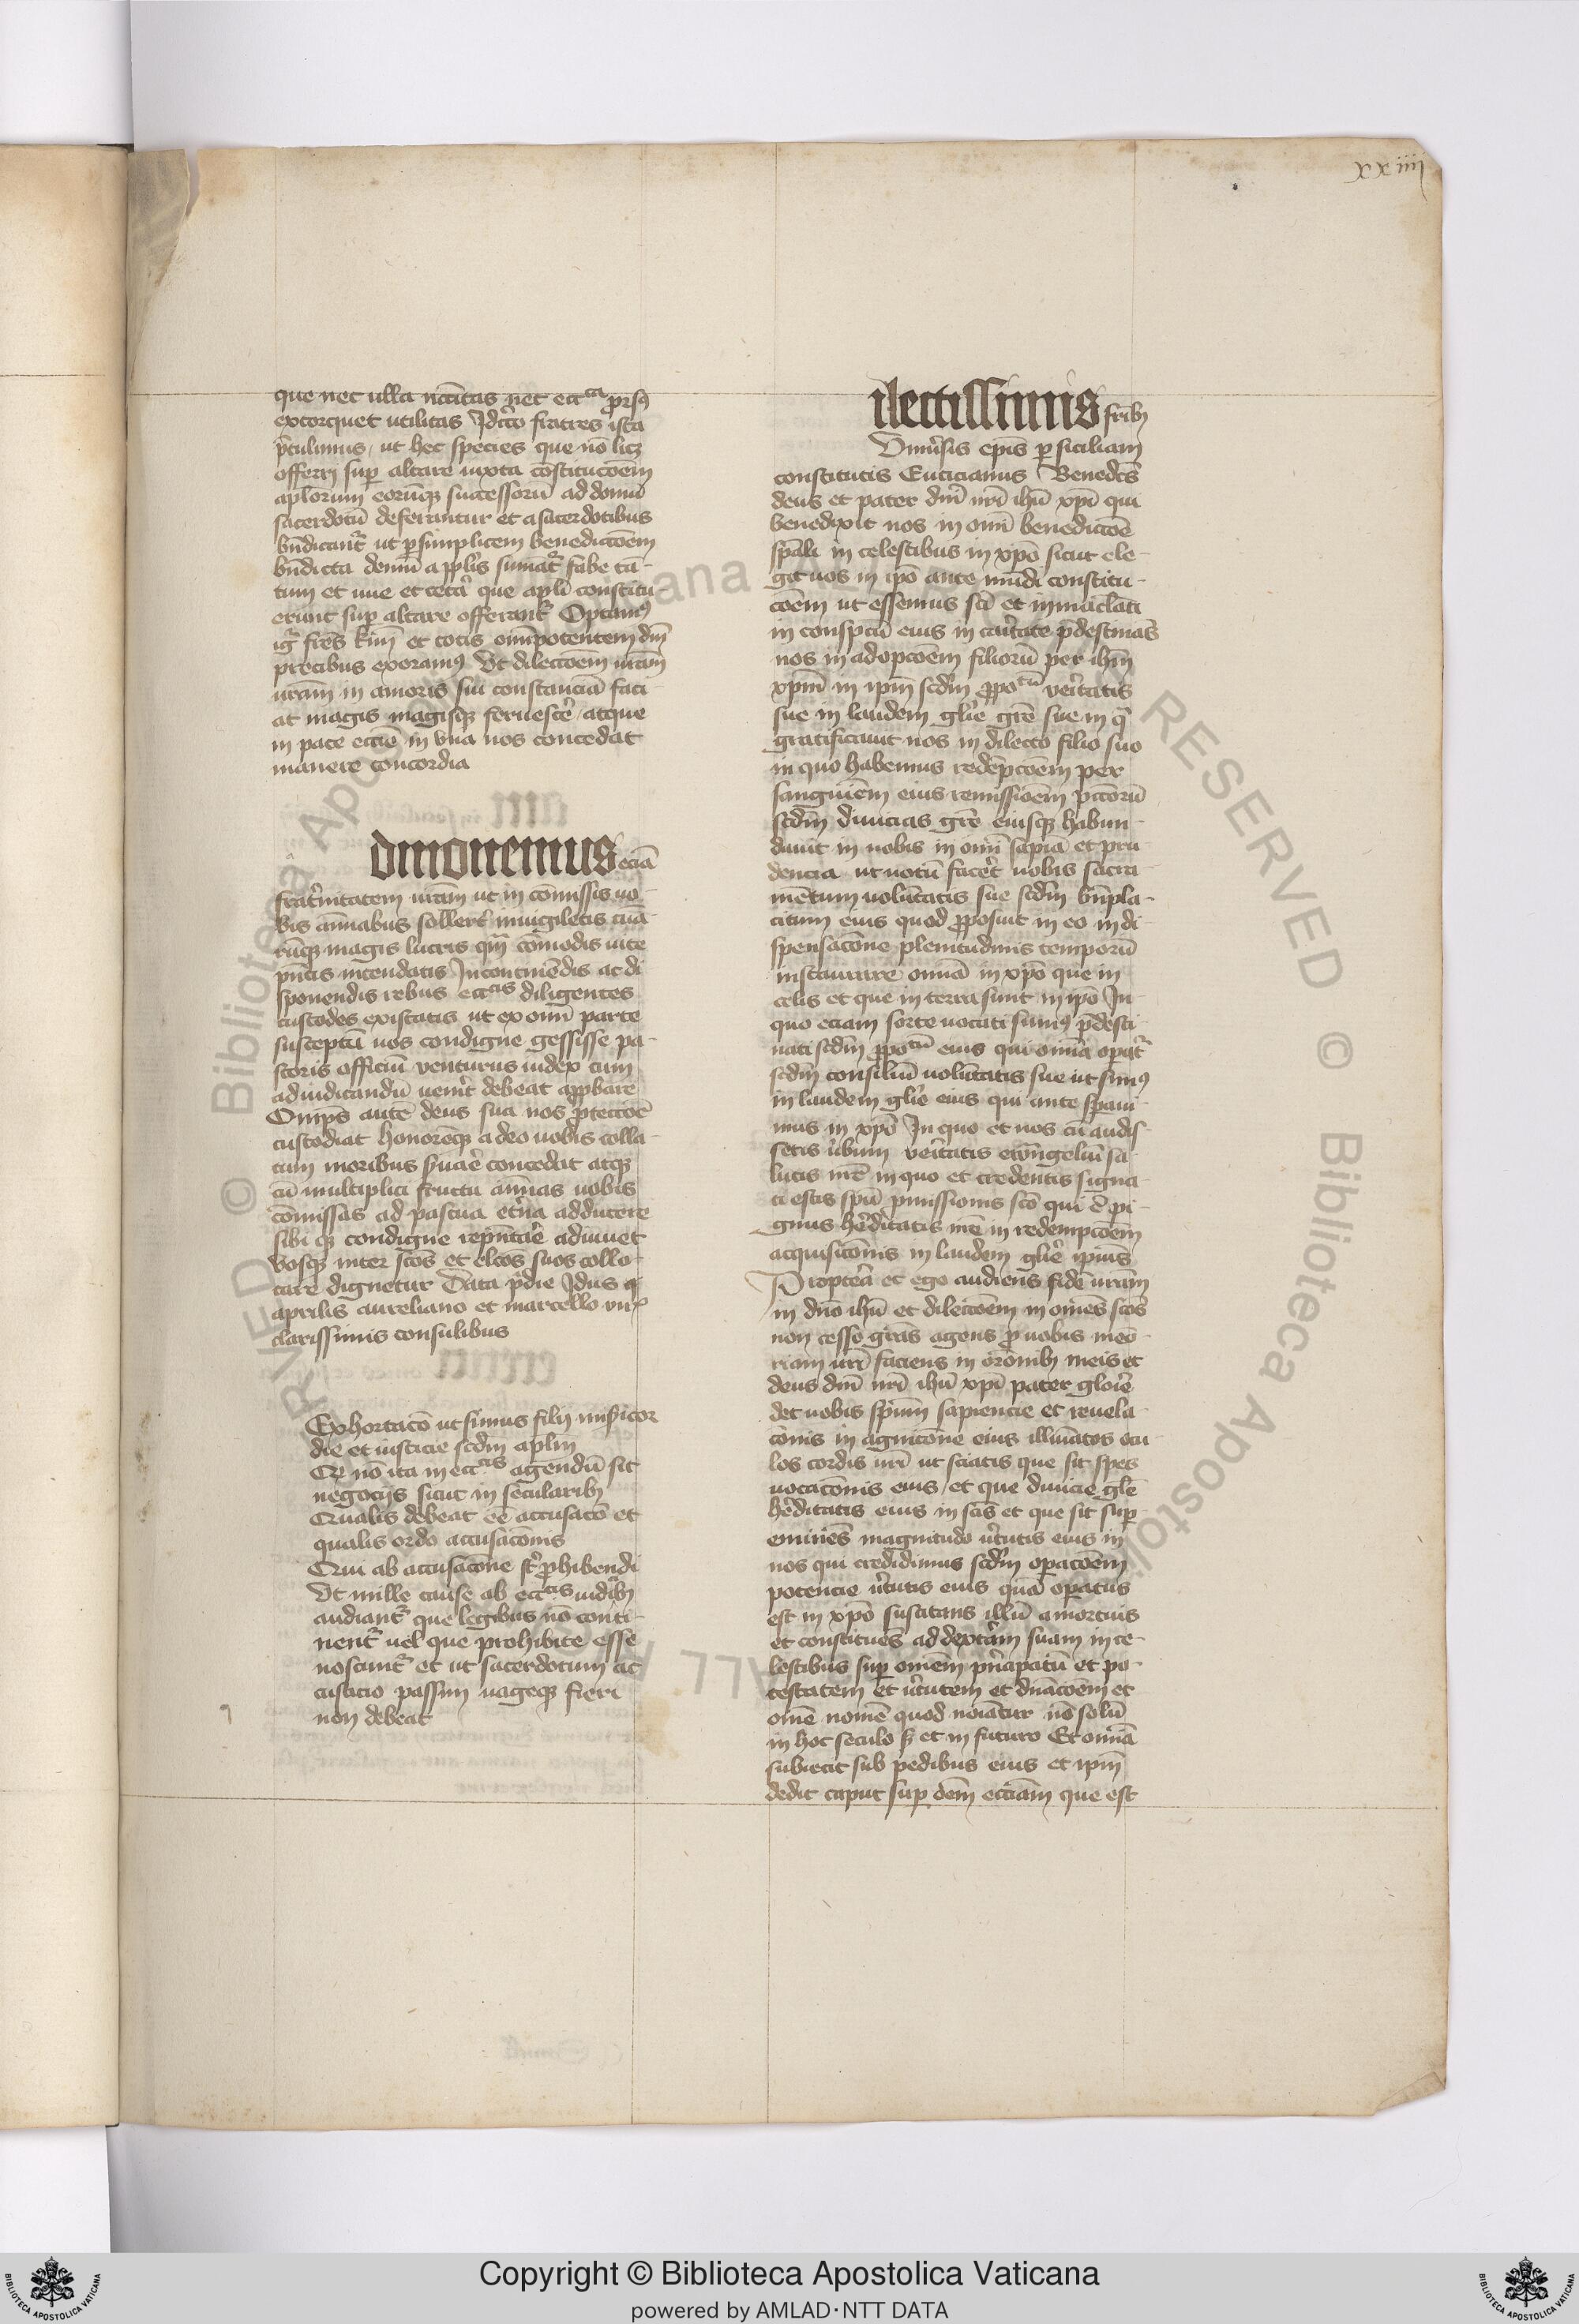 xxiiii
que nec ulla nccītas nec ecctica ꝓrsꝰ
extorquet utilitas Idcͦco fratres ista
ꝓtulimus ut hec species que nō licꝫ
offerri suꝑ altare iuxta cōstitucōem
aplorum eorūqꝫ successorū ad domū
sacerdotū deferantur et a sacerdotibus
bn̄dicant᷑ ut ꝑ simplicem benedictōem
bn̄dicta demū a pplīs sumāt᷑ fabe tā-
tum et uue et cetā que apli constitu
erunt suꝑ altare offerant᷑ Optamꝰ
ig᷑ fr̄es k̄mi et totis om̄ipotentem dm̄
precibus exoramꝰ Ut dilectōem uram
uram in amoris sui constanciā faci-
at magis magisqꝫ feruescē atque
in pace eccie in vna nos concedat
manere concordia
dmonemus eciā
frat̄nitatem uram ut in cōmissis uo-
bis anīabus sollert̄ inuigiletis eciā
rūqꝫ magis lucris qm̄ cōmodis uite
pn̄tis intendatis In continēdis ac di
sponendis rebus ecctis diligentes
custodes existatis ut ex om̄i parte
susceptū uos condigne gessisse pa-
storis officiū venturus iudex cum
ad iudicandū uenīt debeat apꝓbare
Om̄ps aute deus sua nos ꝓteccōe
custodiat honorēqꝫ a deo uobis colla-
tum moribus s̄uare concedat atqꝫ
cū multiplici fructu anīas uobis
cōmissas ad pascua et̄na adducere
sibi qꝫ condigne rep̄ntare adiuuet
vosqꝫ inter scōs et elcōs suos collo-
care dignetur Data p̄die Idus
aprilis aureliano et marcello vir
clarissimis consulibus
Exhortacō ut simus filij mis̄icor
die et iusticie scdm̄ aplm
Qꝫ nō ita in ecctis agendū sit
negocijs sicut in secularibꝫ
Qualis debeat eē accusacō et
qualis ordo accusacōnis
Qui ab accusacōne st̄ ꝓhibendi
Ut nulle cause ab ecctis iudicibꝫ
audiant᷑ que legibus nō conti-
nent᷑ uel que prohibite esse
noscunt᷑ et ut sacerdotum ac
cusacio passim uageqꝫ fieri
non debeat
ilectissimis fr̄ibꝫ
Vniūsis ep̄is ꝑ siciliam
constitutis Euticianus Bened̄cs
deus et pater dm̄i nr̄i ihū xp̄i qui
benedixit nos in om̄i benedictōe
sp̄ali in celestibus in xpō sicut ele-
git nos in ip̄o ante mūdi constitu-
cōem ut essemus sc̄i et inmaclati
in conspcū eius in caritate p̄destinās
nos in adopcōem filiorū per ihm̄
xpm̄ in ip̄m scdm̄ ꝓpotū veritatis
sue in laudem gl̄ie gr̄e sue in q̄
gratificauit nos in dilecto filio suo
in quo habemus redēpcōem per
sanguiēm eius remissiōem pccorū
scdm̄ diuicias gr̄e eiusqꝫ habun-
dauit in nobis in om̄i sapia et pru-
dencia ut notū facet̄ nobis sacra-
mētum uolūtatis sue scdm̄ bn̄pla-
citum eius quod ꝓposuit in eo in di-
spensacōne plenitudinis temporū
instaurare omīa in xpō que in
celis et que in terra sunt in ip̄o In
quo eciam sorte uocati sumꝰ p̄desti-
nati scdm̄ ꝓpotū eius qui omīa opat᷑
scdm̄ consiliū uolūtatis sue ut simꝰ
in laudem gl̄ie eius qui ante sꝑaui-
mus in xpō In quo et uos cū audis-
setis ūbum veritatis ewāngeliū sa
lutis nr̄e in quo et credentes signa-
ti estis spū ꝓmissionis scō qui ē pi-
gnus hēditatis nr̄e in redempcōem
acquisicōnis in laudem gl̄ie ip̄ius
Proptea et ego audiens fidē uram
in dn̄o ihū et dilectōem in omēs scōs
non cesso gr̄as agens ꝓ uobis meō-
riam uri faciens in orōnibꝫ meis et
deus dm̄i nr̄i ihū xp̄i pater glorie
det uobis sp̄um sapiencie et reuela-
cōnis in agnicōne eius illuīatos ocu
los cordis uri ut sciatis que sit spes
uocacōnis eius et que diuicie gl̄e
hēditatis eius in sc̄is et que sit suꝑ
eminēs magnitudo ūtutis eius in
nos qui credidimus scdm̄ oꝑacōem
potencie ūtutis eius quā oꝑatus
est in xpō suscitans illū a mortuis
et constituēs ad dextām suam in ce-
lestibus suꝑ omēm pn̄cipatū et po-
testatem et ūtutem et dn̄acōem et
omē nomē quod noīatur nō solū
in hoc seculo sꝫ et in futuro Et omīa
subiecit sub pedibus eius et ip̄m
dedit caput suꝑ oēm ecciam que est
Copyright © Biblioteca Apostolica Vaticana
powered by AMLAD·NTT DATA